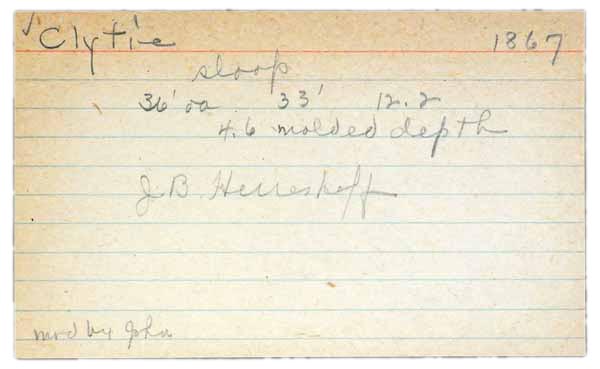 ✓ Clytie 1867
sloop
36' oa 33' 12.2
4.6 molded depth
J.B. Herreshoff
mod by John